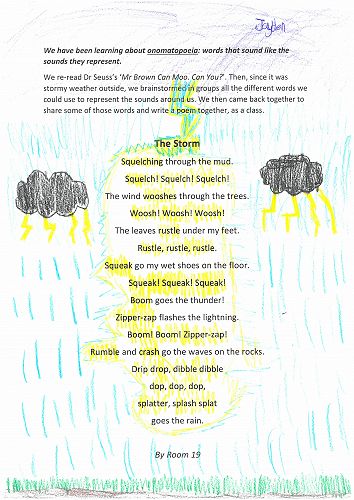 Jayden
We have been learning about onomatopoeia: words that sound like the
sounds they represent.
We re-read Dr Seuss's 'Mr Brown Can Moo. Can You?'. Then, since it was
stormy weather outside, we brainstormed in groups all the different words we
could use to represent the sounds around us. We then came back together to
share some of those words and write a poem together, as a class.
The Storm
Squelching through the mud.
Squelch! Squelch! Squelch!
The wind wooshes through the trees.
Woosh! Woosh! Woosh!
The leaves rustle under my feet.
Rustle, rustle, rustle.
Squeak go my wet shoes on the floor.
Squeak! Squeak! Squeak!
Boom goes the thunder!
Zipper-zap flashes the lightning.
Boom! Boom! Zipper-zap!
Rumble and crash go the waves on the rocks.
Drip drop, dibble dibble
dop, dop, dop,
splatter, splash splat
goes the rain.
By Room 19